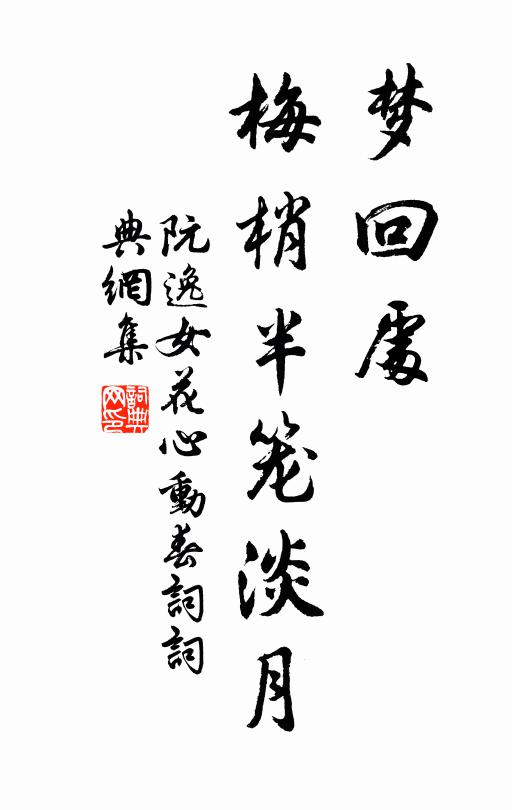 梦回處
梅梢半笼淡月
阮逸女花心動春詞詞
典網集
詞典
网印